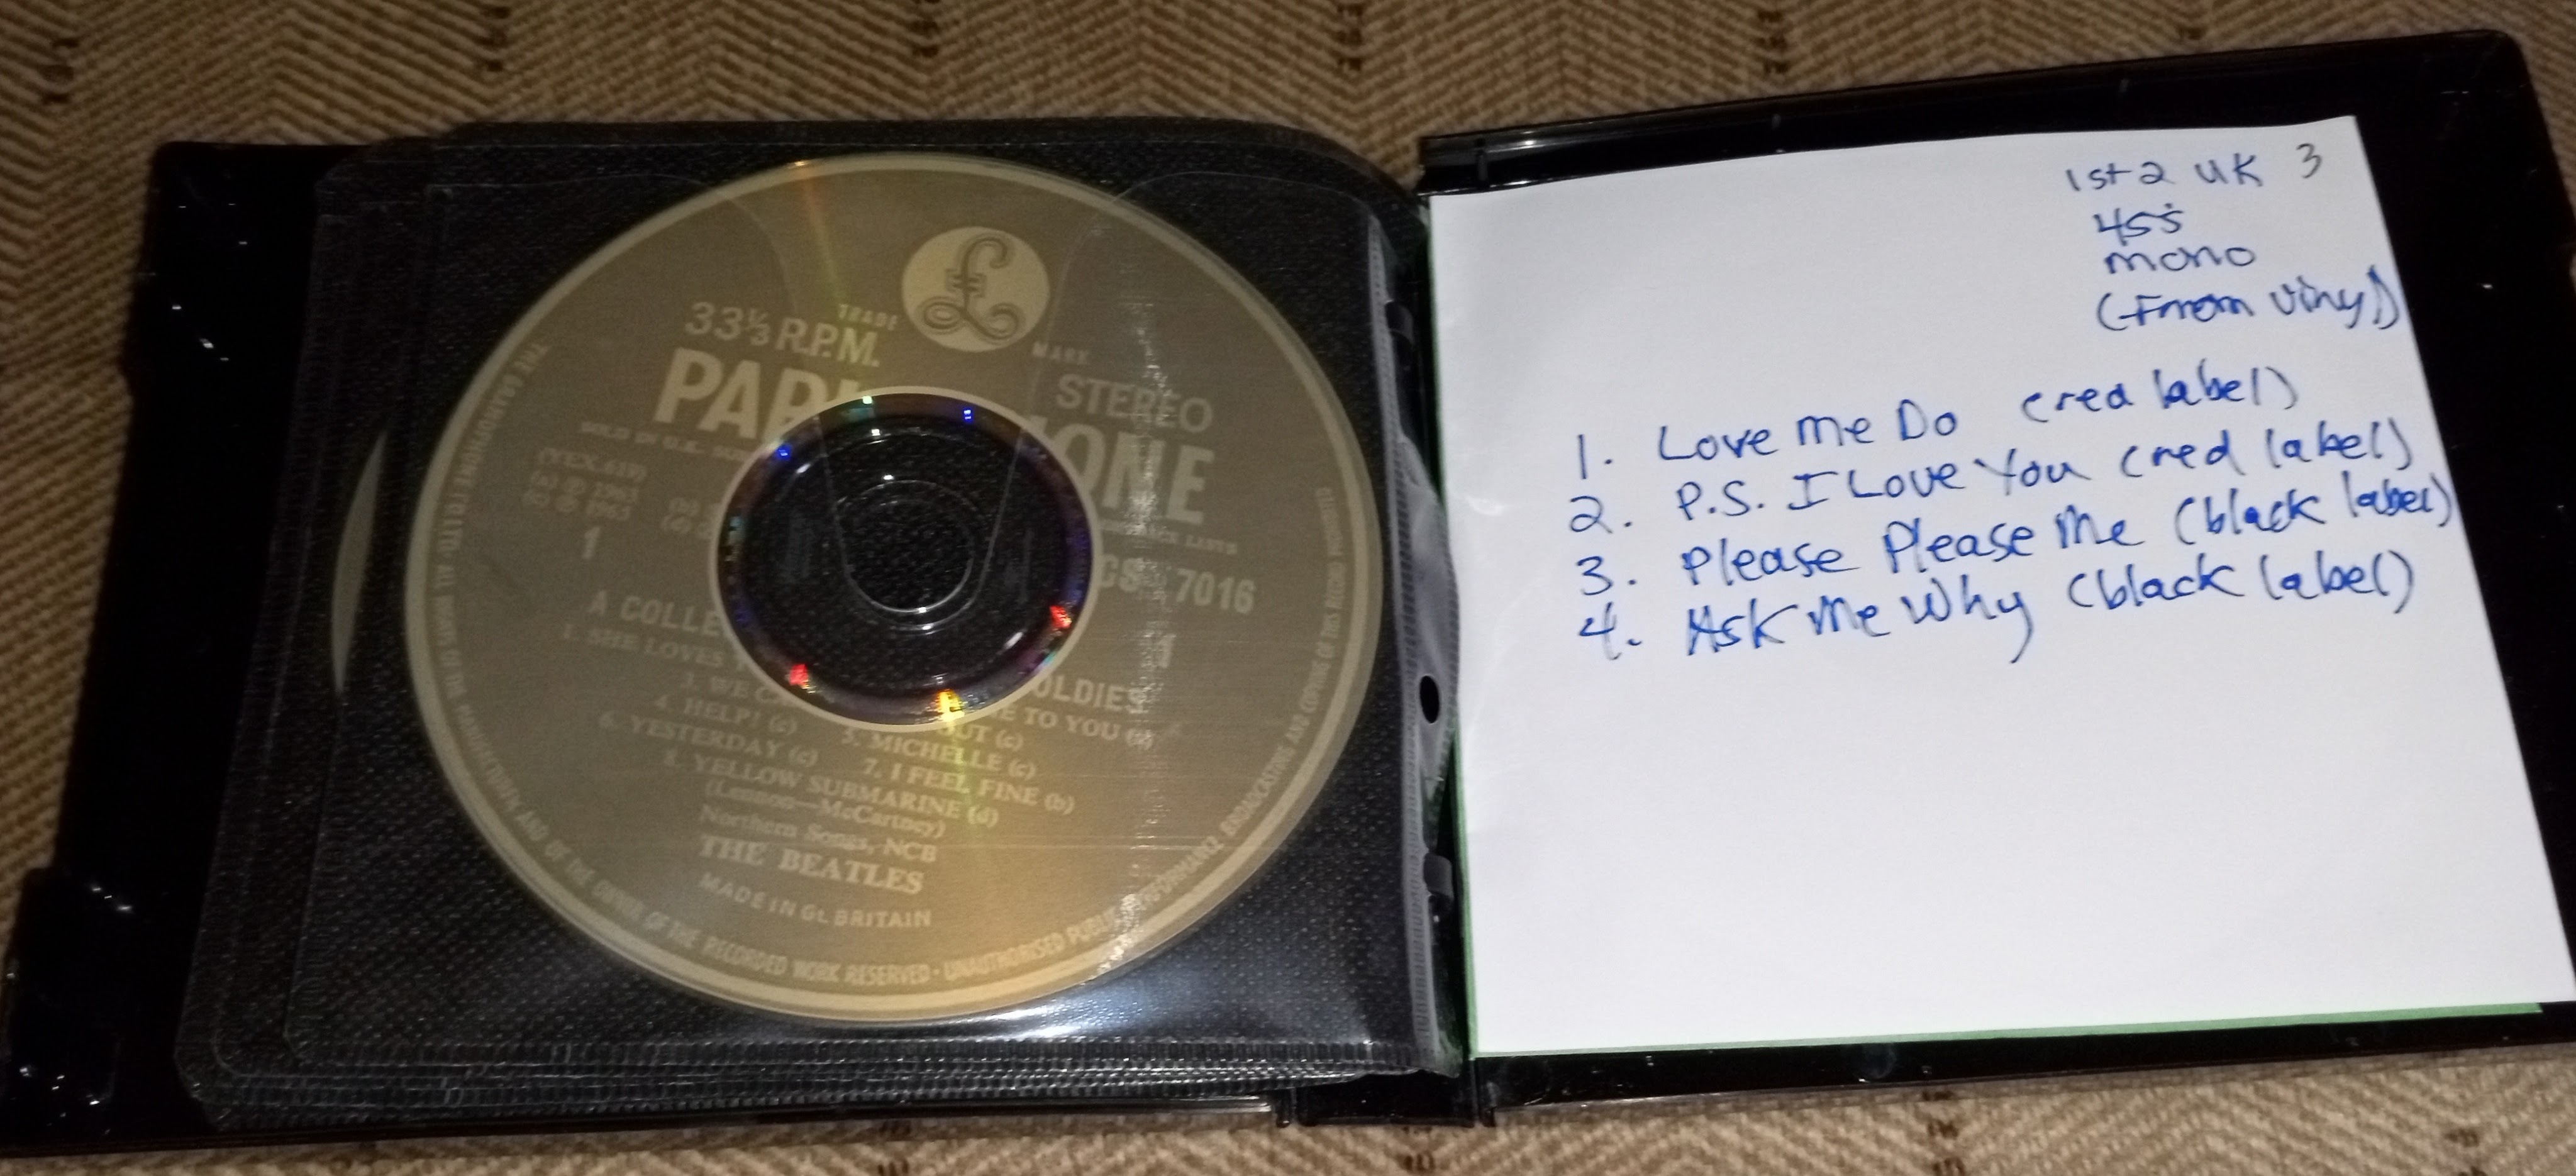 TRADE
MARK
33⅓ R.P.M.
STEREO
SOLD IN U.K.
(YEX.619)
1
7016
1
A COLLE OLDIES
1. SHE LOVES TO YOU
3. WE C OUT (c)
4. HELP! (c) 5. MICHELLE (c)
6. YESTERDAY (c) 7. I FEEL FINE (b)
8. YELLOW SUBMARINE (d)
(Lennon—McCartney)
Northern Songs, NCB
THE BEATLES
MADE IN GT. BRITAIN
ALL RIGHTS OF THE MANUFACTURER AND OF THE OWNER OF THE RECORDED WORK RESERVED · UNAUTHORISED PUBLIC PERFORMANCE BROADCASTING AND COPYING OF THIS RECORD PROHIBITED
1st 2 UK 3
45s
mono
(From vinyl)
1. Love Me Do (red label)
2. P.S. I Love You (red label)
3. Please Please Me (black label)
4. Ask Me Why (black label)